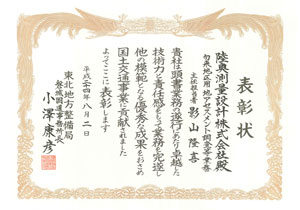 表彰状
陸奥測量設計株式会社殿
主任担当者 影山隆喜
貴社は頭書業務の遂行にあたり卓越した
技術力と責任感をもって業務を完遂し
他の模範となる優秀な成果をおさめ
国土交通事業に貢献されました
よってここに表彰します
平成二十四年八月二日
東北地方整備局
磐城国道事務所長
小澤康彦